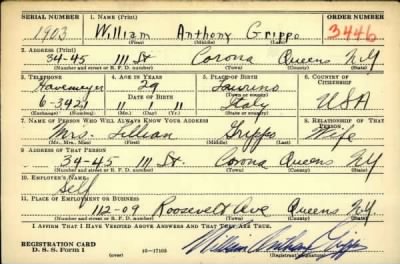 SERIAL NUMBER 1. NAME (Print) ORDER NUMBER
1903 William Anthony Grippo 3446
(First) (Middle) (Last)
2. ADDRESS (Print)
34-45 111 St Corona Queens N.Y
(Number and street or R. F. D. number) (Town) (County) (State)
3. TELEPHONE 4. AGE IN YEARS 5. PLACE OF BIRTH 6. COUNTRY OF CITIZENSHIP
Havemeyer 29
DATE OF BIRTH
6-3921 Italy USA
(Exchange) (Number) (Mo.) (Day) (Yr.) (State or country)
7. NAME OF PERSON WHO WILL ALWAYS KNOW YOUR ADDRESS 8. RELATIONSHIP OF THAT PERSON
Mrs. Lillian Grippo Wife
(Mr., Mrs., Miss) (First) (Middle) (Last)
9. ADDRESS OF THAT PERSON
34-45 111 St. Corona Queens N.Y
(Number and street or R. F. D. number) (Town) (County) (State)
10. EMPLOYER'S NAME
Self
11. PLACE OF EMPLOYMENT OR BUSINESS
112-09 Roosevelt Ave Queens N.Y.
(Number and street or R. F. D. number) (Town) (County) (State)
I AFFIRM THAT I HAVE VERIFIED ABOVE ANSWERS AND THAT THEY ARE TRUE.
REGISTRATION CARD
D. S. S. Form 1 (over) 16-17105 William Anthony Grippo